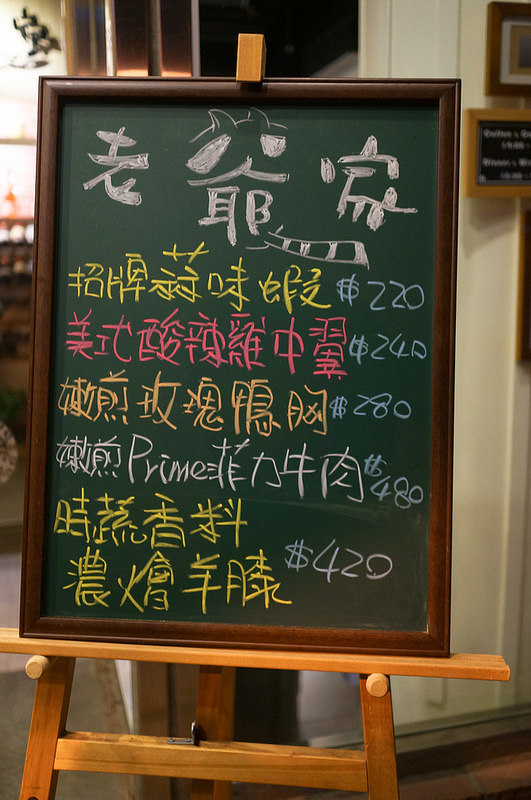 老爺家
招牌蒜味蝦 $220
美式酸辣雞中翼 $240
嫩煎玫瑰鴨胸 $280
嫩煎Prime菲力牛肉 $480
時蔬香料
濃燴羊膝 $420